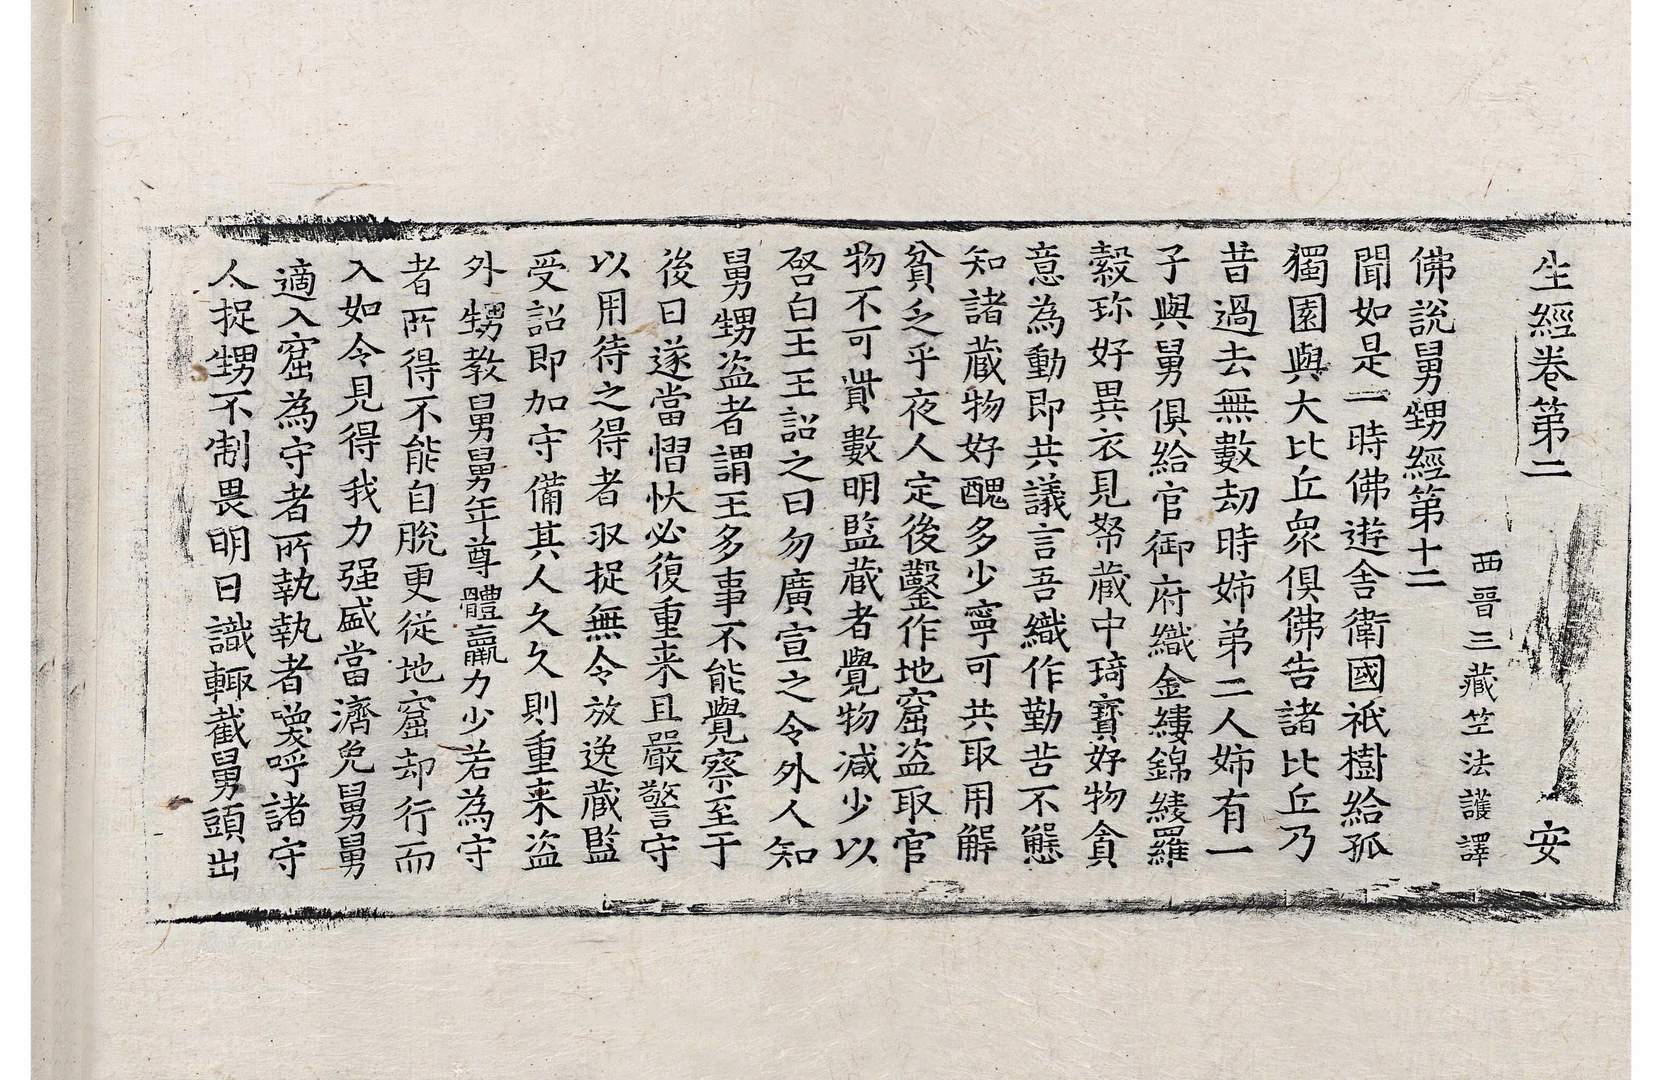 生經卷第二 安
西晉三藏竺法護譯
佛說舅甥經第十二
聞如是一時佛遊舍衛國祇樹給孤
獨園與大比丘衆俱佛告諸比丘乃
昔過去無數劫時姊弟二人姊有一
子與舅俱給官御府織金縷錦綾羅
縠珎好異衣見帑藏中琦寶好物貪
意為動即共議言吾織作勤苦不懈
知諸藏物好醜多少寧可共取用解
貧乏乎夜人定後鑿作地窟盜取官
物不可貲數明監藏者覺物減少以
啓白王王詔之曰勿廣宣之令外人知
舅甥盜者謂王多事不能覺察至于
後日遂當慴忕必復重来且嚴警守
以用待之得者収捉無令放逸藏監
受詔即加守備其人久久則重来盜
外甥教舅舅舅年尊體羸力少若為守
者所得不能自脫更從地窟却行而
入如令見得我力强盛當濟免舅舅
適入窟為守者所執執者喚呼諸守
人捉甥不制畏明日識輙截舅頭出